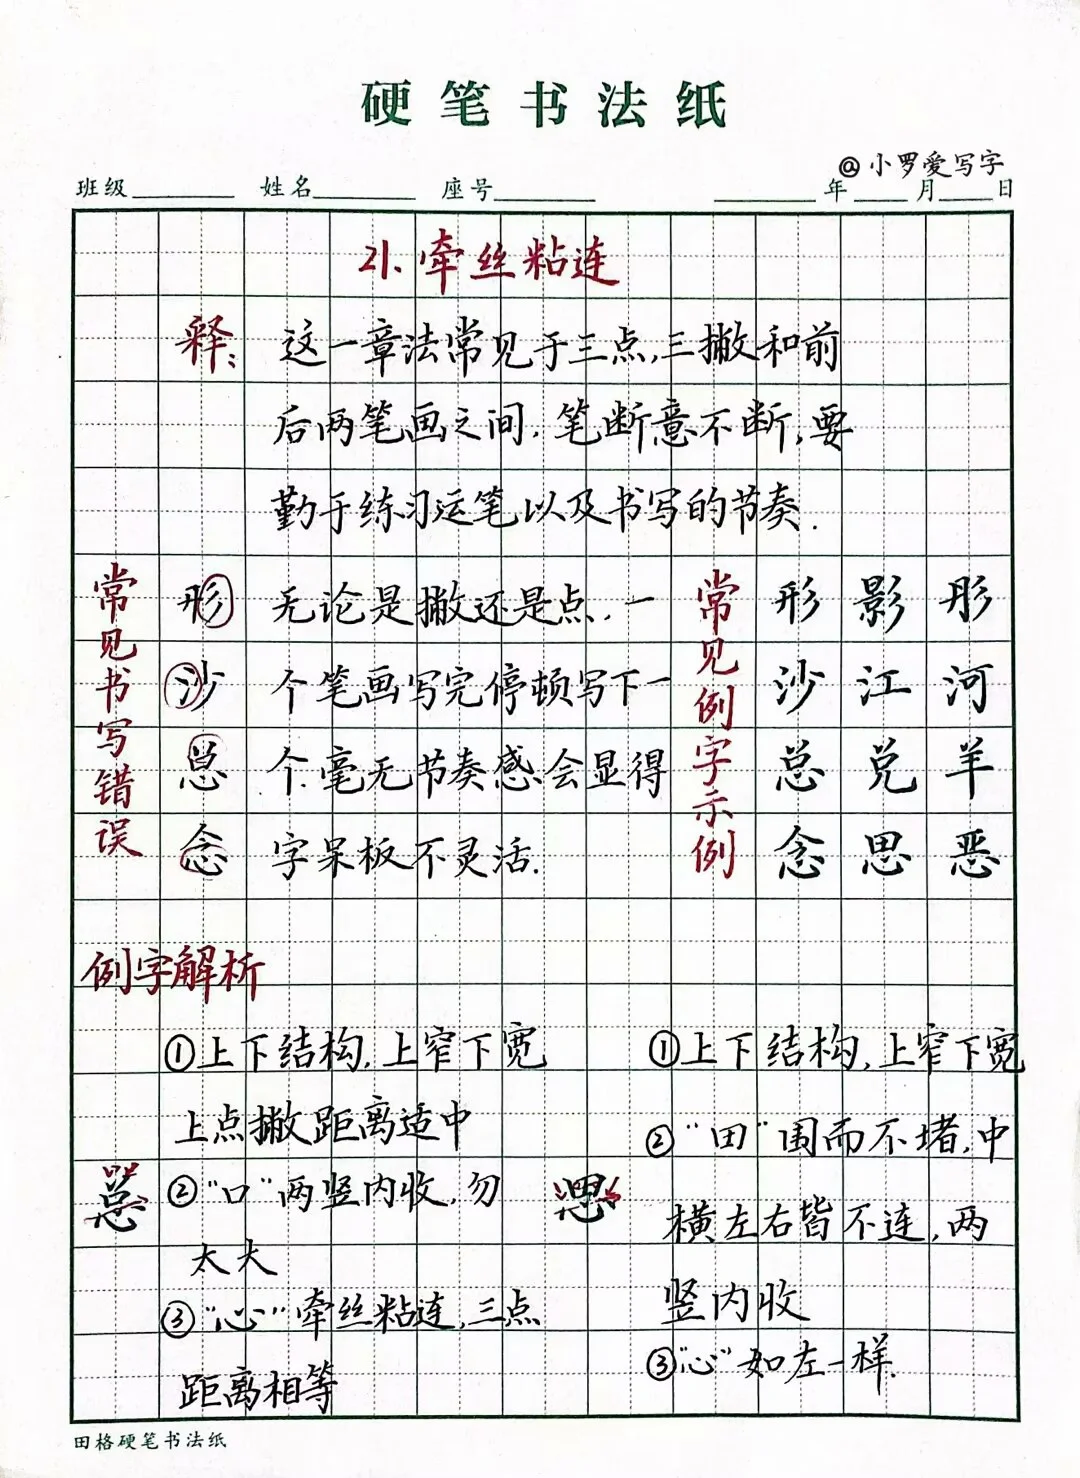 硬笔书法纸
@小罗爱写字
班级 姓名 座号 年 月 日
21、牵丝粘连
释：这一章法常见于三点,三撇和前
后两笔画之间.笔断意不断,要
勤于练习运笔以及书写的节奏.
常见书写错误
形 无论是撇还是点.一
沙 个笔画写完停顿写下一
总 个.毫无节奏感.会显得
念 字呆板不灵活.
常见例字示例
形 影 彤
沙 江 河
总 兑 羊
念 思 恶
例字解析
总
①上下结构,上窄下宽
上点撇距离适中
②"口"两竖内收,勿
太大
③"心"牵丝粘连,三点
距离相等
思
①上下结构,上窄下宽
②"田"围而不堵,中
横左右皆不连,两
竖内收
③"心"如左一样.
田格硬笔书法纸